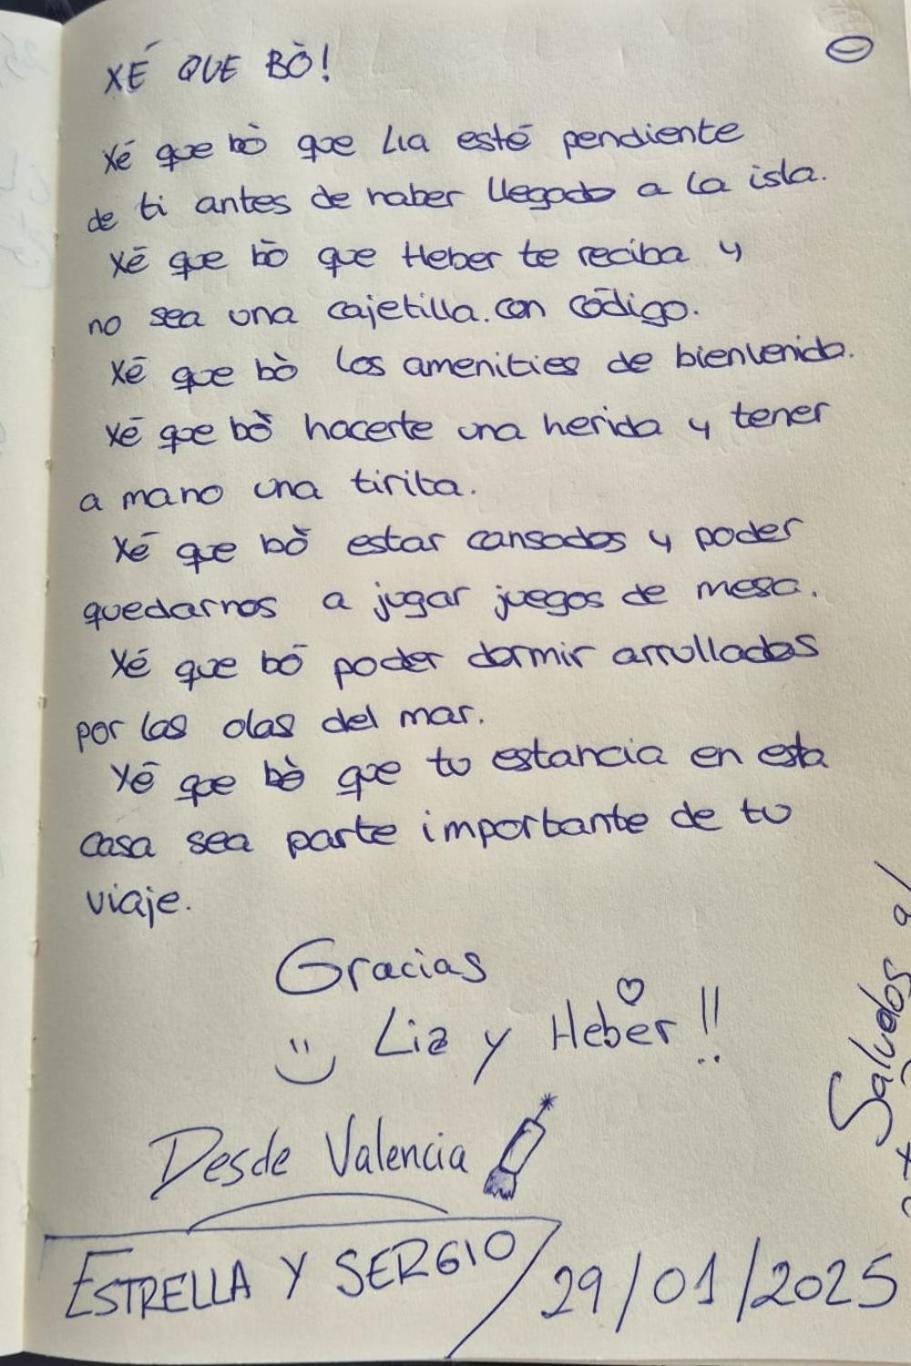 XÉ QUE BÒ!
Xé que bò que Lia esté pendiente
de ti antes de haber llegado a la isla.
Xé que bò que Heber te reciba y
no sea una cajetilla con código.
Xé que bò los amenities de bienvenida.
Xé que bò hacerte una herida y tener
a mano una tirita.
Xé que bò estar cansados y poder
quedarnos a jugar juegos de mesa.
Xé que bó poder dormir arrullados
por las olas del mar.
Xé que bò que tu estancia en esta
casa sea parte importante de tu
viaje.
Gracias
Lia y Heber!!
Desde Valencia
ESTRELLA Y SERGIO
29/01/2025
Saludos al